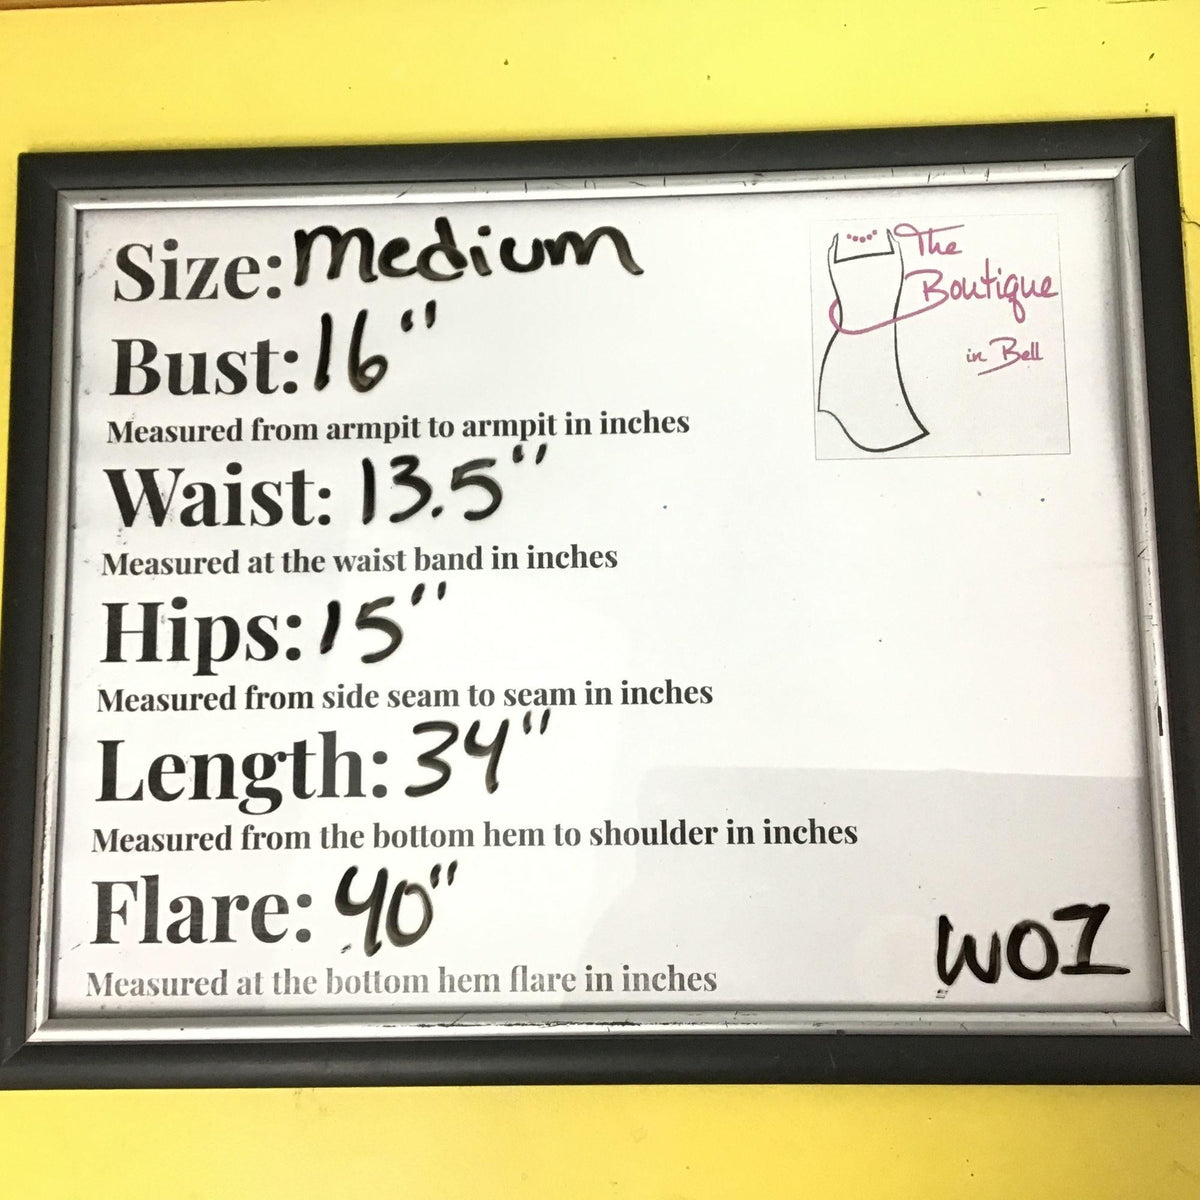 Size: Medium
Bust: 16"
Measured from armpit to armpit in inches
Waist: 13.5"
Measured at the waist band in inches
Hips: 15"
Measured from side seam to seam in inches
Length: 34"
Measured from the bottom hem to shoulder in inches
Flare: 40"
Measured at the bottom hem flare in inches
The
Boutique
in Bell
WOI